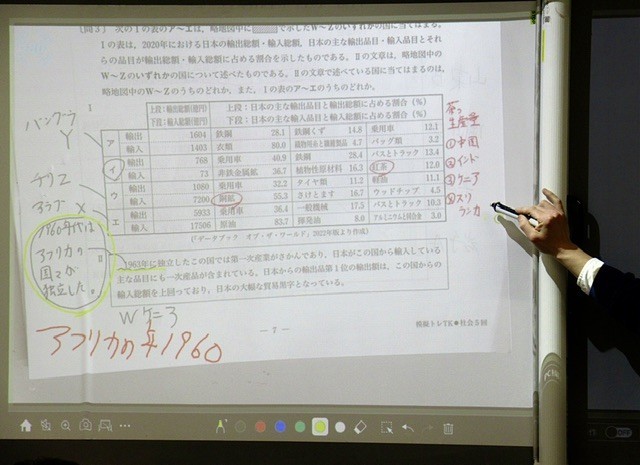 〔問3〕 次のⅠの表のア～エは、略地図中の で示したW～Zのいずれかの国に当てはまる。
Ⅰの表は、2020年における日本の輸出総額・輸入総額、日本の主な輸出品目・輸入品目とそれ
らの品目が輸出総額・輸入総額に占める割合を示したものである。Ⅱの文章は、略地図中の
W～Zのいずれかの国について述べたものである。Ⅱの文章で述べている国に当てはまるのは、
略地図中のW～Zのうちのどれか、また、Ⅰの表のア～エのうちのどれか。
Ⅰ
上段：輸出総額(億円) 上段：日本の主な輸出品目と輸出総額に占める割合（%）
下段：輸入総額(億円) 下段：日本の主な輸入品目と輸入総額に占める割合（%）
ア 輸出 1604 鉄鋼 28.1 鉄鋼くず 14.8 乗用車 12.1
輸入 1403 衣類 80.0 4.7 バッグ類 3.2
イ 輸出 768 乗用車 40.9 鉄鋼 28.4 バスとトラック 13.4
輸入 73 非鉄金属鉱 36.7 植物性原材料 16.3 紅茶 12.0
ウ 輸出 1080 乗用車 32.3 タイヤ類 11.2 軽油 11.1
輸入 7200 銅鉱 55.3 さけとます 16.7 ウッドチップ 4.5
エ 輸出 5933 乗用車 36.4 一般機械 17.5 バスとトラック 10.3
輸入 17506 原油 83.7 揮発油 8.0 アルミニウムと同合金 3.0
（「データブック オブ・ザ・ワールド」2022年版より作成）
Ⅱ
1963年に独立したこの国では第一次産業がさかんであり、日本がこの国から輸入している
主な品目にも一次産品が含まれている。日本からの輸出品第1位の輸出額は、この国からの
輸入総額を上回っており、日本の大幅な貿易黒字となっている。
－7－
模擬トレTK●社会5回
バングラ
Y
チリ Z
アラブ X
1960年代は
アフリカの
国々が
独立した。
W ケニア
アフリカの年1960
茶の
生産量
①中国
②インド
③ケニア
④スリ
ランカ